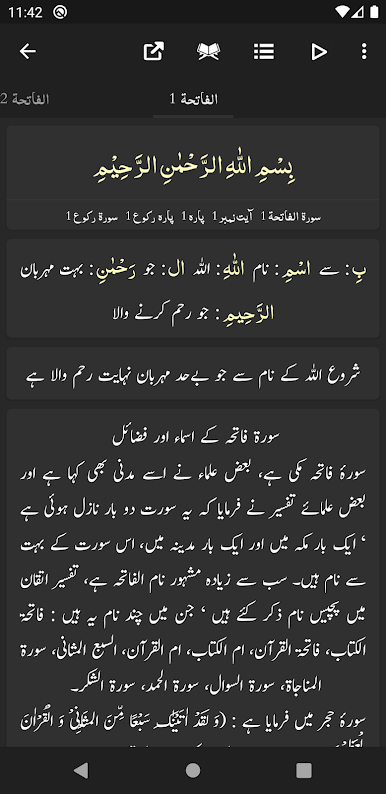 11:42
الفاتحة 1
الفاتحة 2
بِسْمِ اللّٰهِ الرَّحْمٰنِ الرَّحِیْمِ
سورۃ الفاتحۃ 1 آیت نمبر 1 پارہ 1 پارہ رکوع 1 سورۃ رکوع 1
بِ : سے اسْمِ : نام اللّٰهِ : اللہ ال : جو رَحْمٰنِ : بہت مہربان
الرَّحِيمِ : جو رحم کرنے والا
شروع اللہ کے نام سے جو بےحد مہربان نہایت رحم والا ہے
سورۃ فاتحہ کے اسماء اور فضائل
سورۂ فاتحہ مکی ہے، بعض علماء نے اسے مدنی بھی کہا ہے اور
بعض علمائے تفسیر نے فرمایا کہ یہ سورت دو بار نازل ہوئی ہے
‘ ایک بار مکہ میں اور ایک بار مدینہ میں، اس سورت کے بہت
سے نام ہیں۔ سب سے زیادہ مشہور نام الفاتحہ ہے، تفسیر اتقان
میں پچیس نام ذکر کئے ہیں ‘ جن میں چند نام یہ ہیں : فاتحۃ
الکتاب، فاتحۃ القرآن، ام الکتاب، ام القرآن، السبع المثانی، سورۃ
المناجاۃ، سورۃ السوال، سورۃ الحمد، سورۃ الشکر۔
سورۂ حجر میں فرمایا ہے : (وَ لَقَدْ اٰتَیْنٰکَ سَبْعًا مِّنَ الْمَثَانِیْ وَ الْقُرْاٰنَ